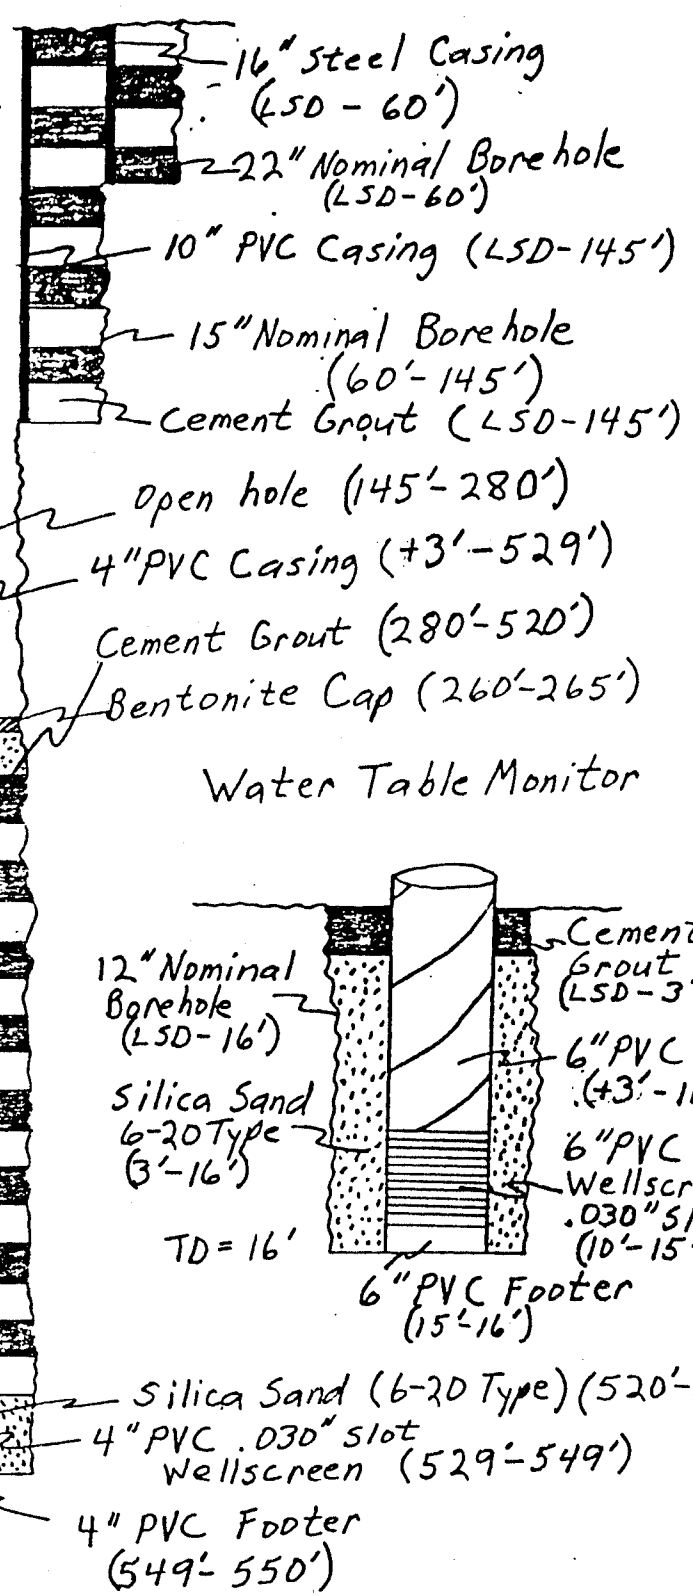 16" Steel Casing
(LSD - 60')
22" Nominal Borehole
(LSD-60')
10" PVC Casing (LSD-145')
15" Nominal Borehole
(60'-145')
Cement Grout (LSD-145')
Open hole (145'-280')
4" PVC Casing (+3'-529')
Cement Grout (280'-520')
Bentonite Cap (260'-265')
Water Table Monitor
Cement
Grout
(LSD-3'
12" Nominal
Borehole
(LSD-16')
6" PVC
(+3'-1
Silica Sand
6-20 Type
(3'-16')
6" PVC
Wellscr
.030" Sl
(10'-15'
TD = 16'
6" PVC Footer
(15'-16')
Silica Sand (6-20 Type) (520'-
4" PVC .030" Slot
Wellscreen (529'-549')
4" PVC Footer
(549'-550')